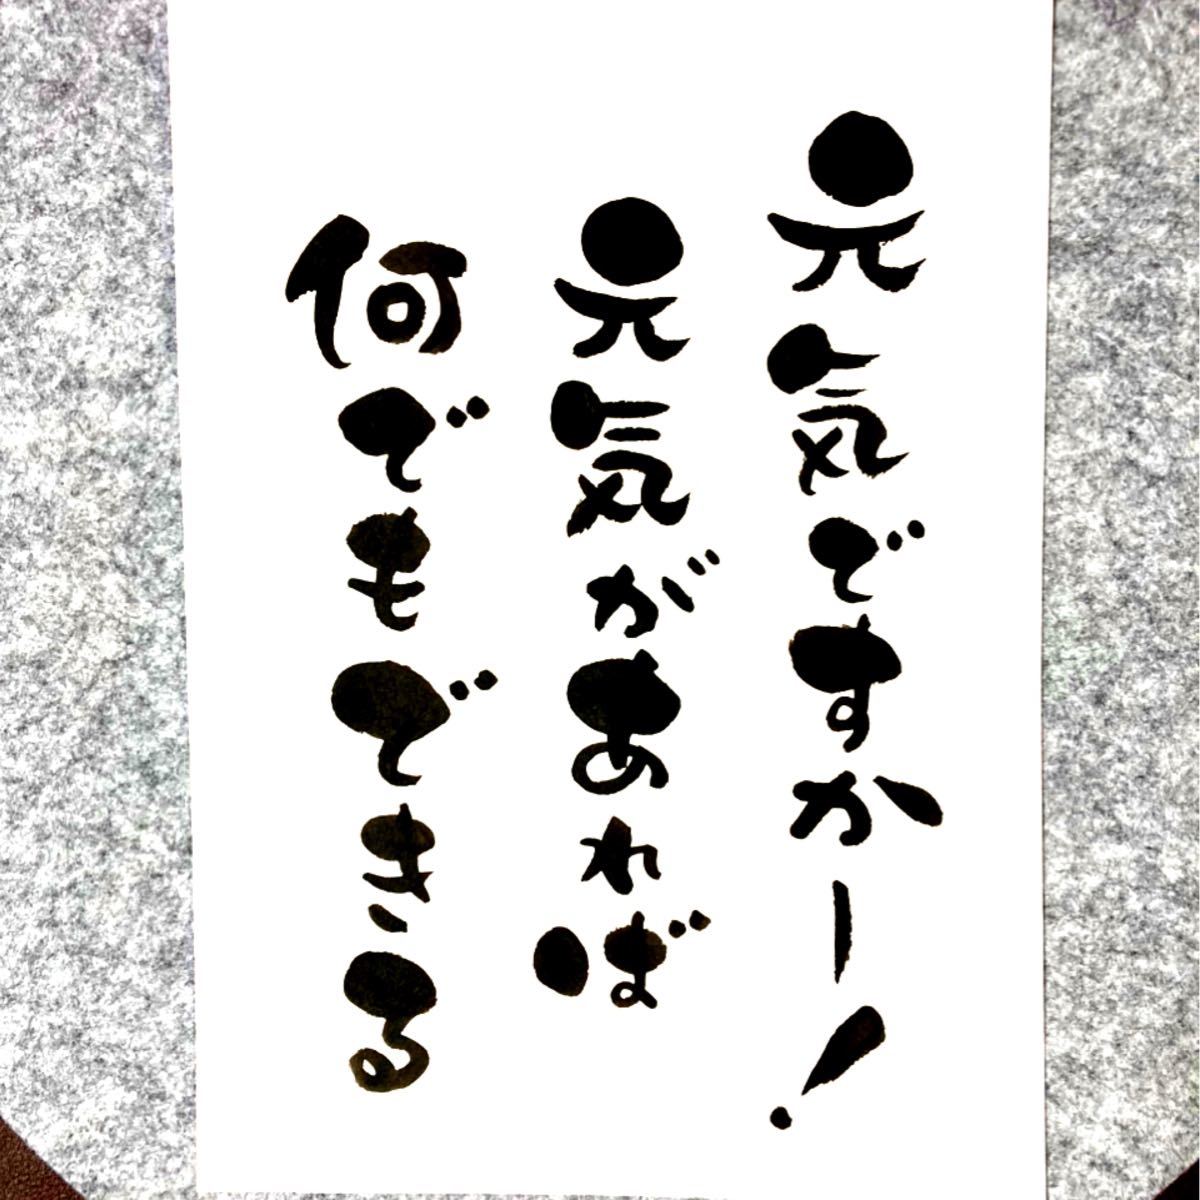 元気ですかー!
元気があれば
何でもできる